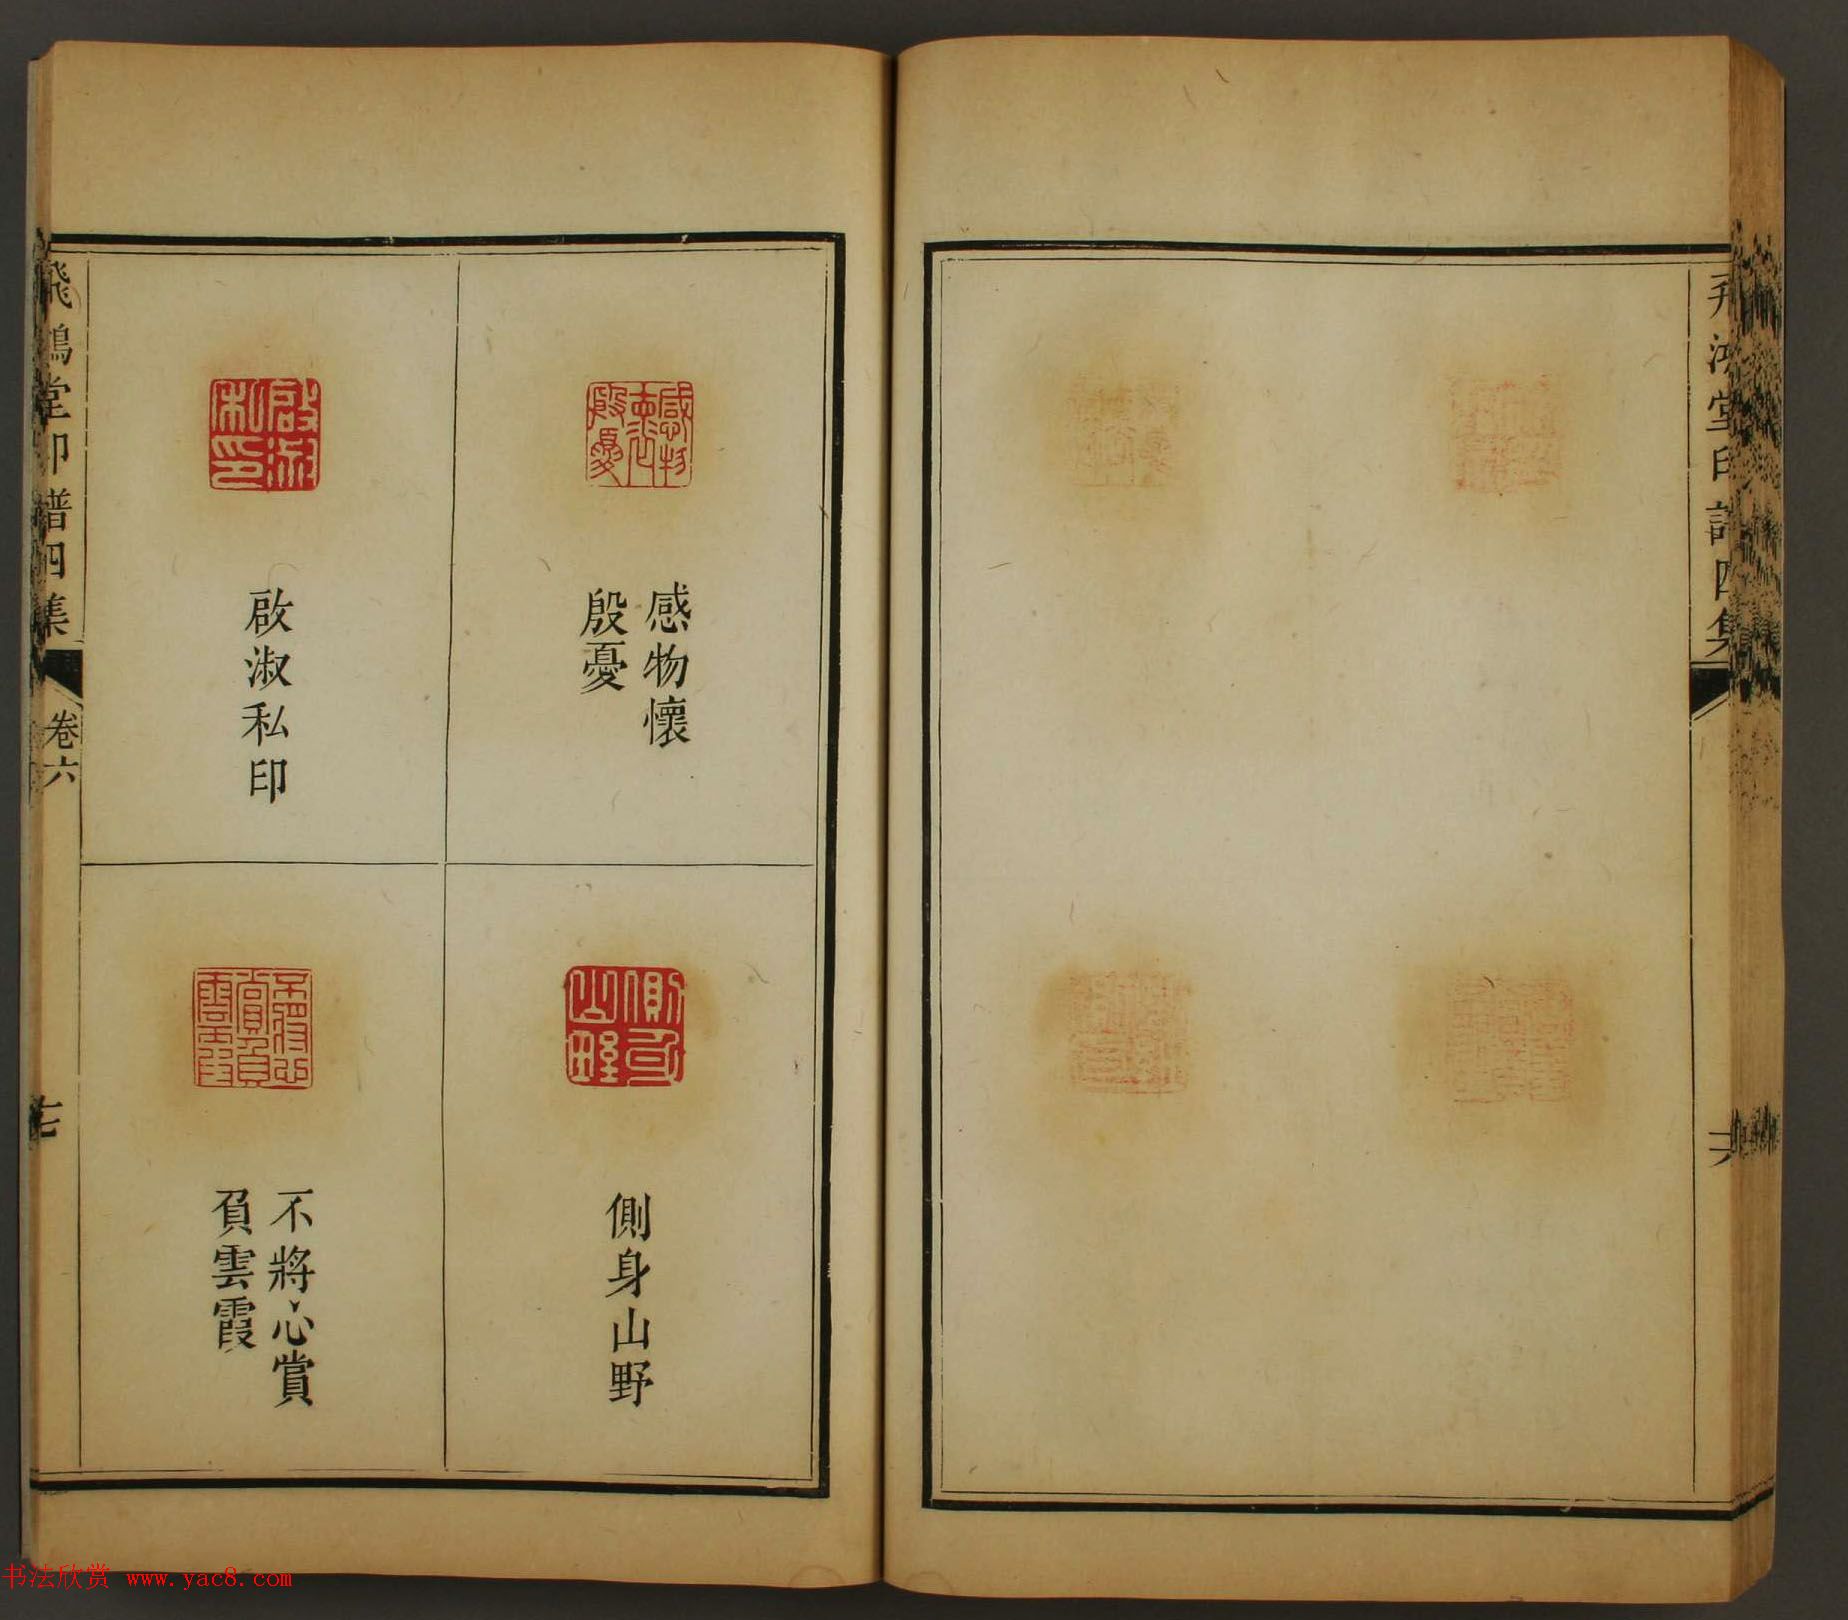 飛鴻堂印譜四集
感物懷
殷憂
啟淑私印
側身山野
不將心賞
負雲霞
飛鴻堂印譜四集
卷六
七
书法欣赏 www.yac8.com